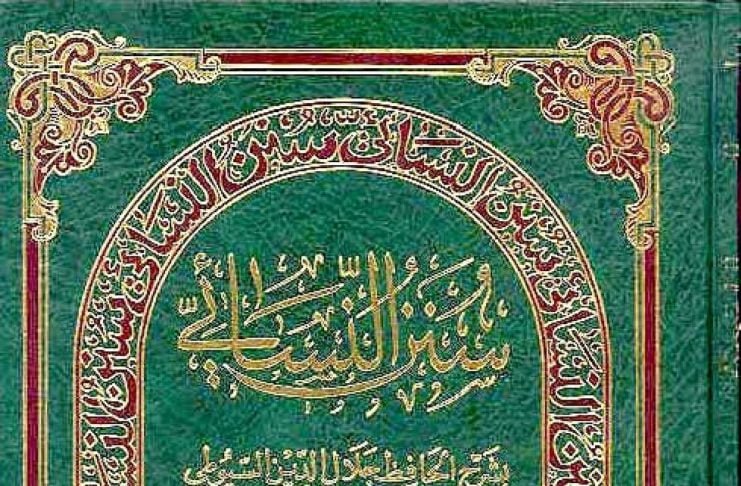 سنن النسائي سنن النسائي سنن النسائي سنن النسائي سنن
سُنَنُ النَّسَائِيّ
بشرح الحافظ جلال الدين السيوطي